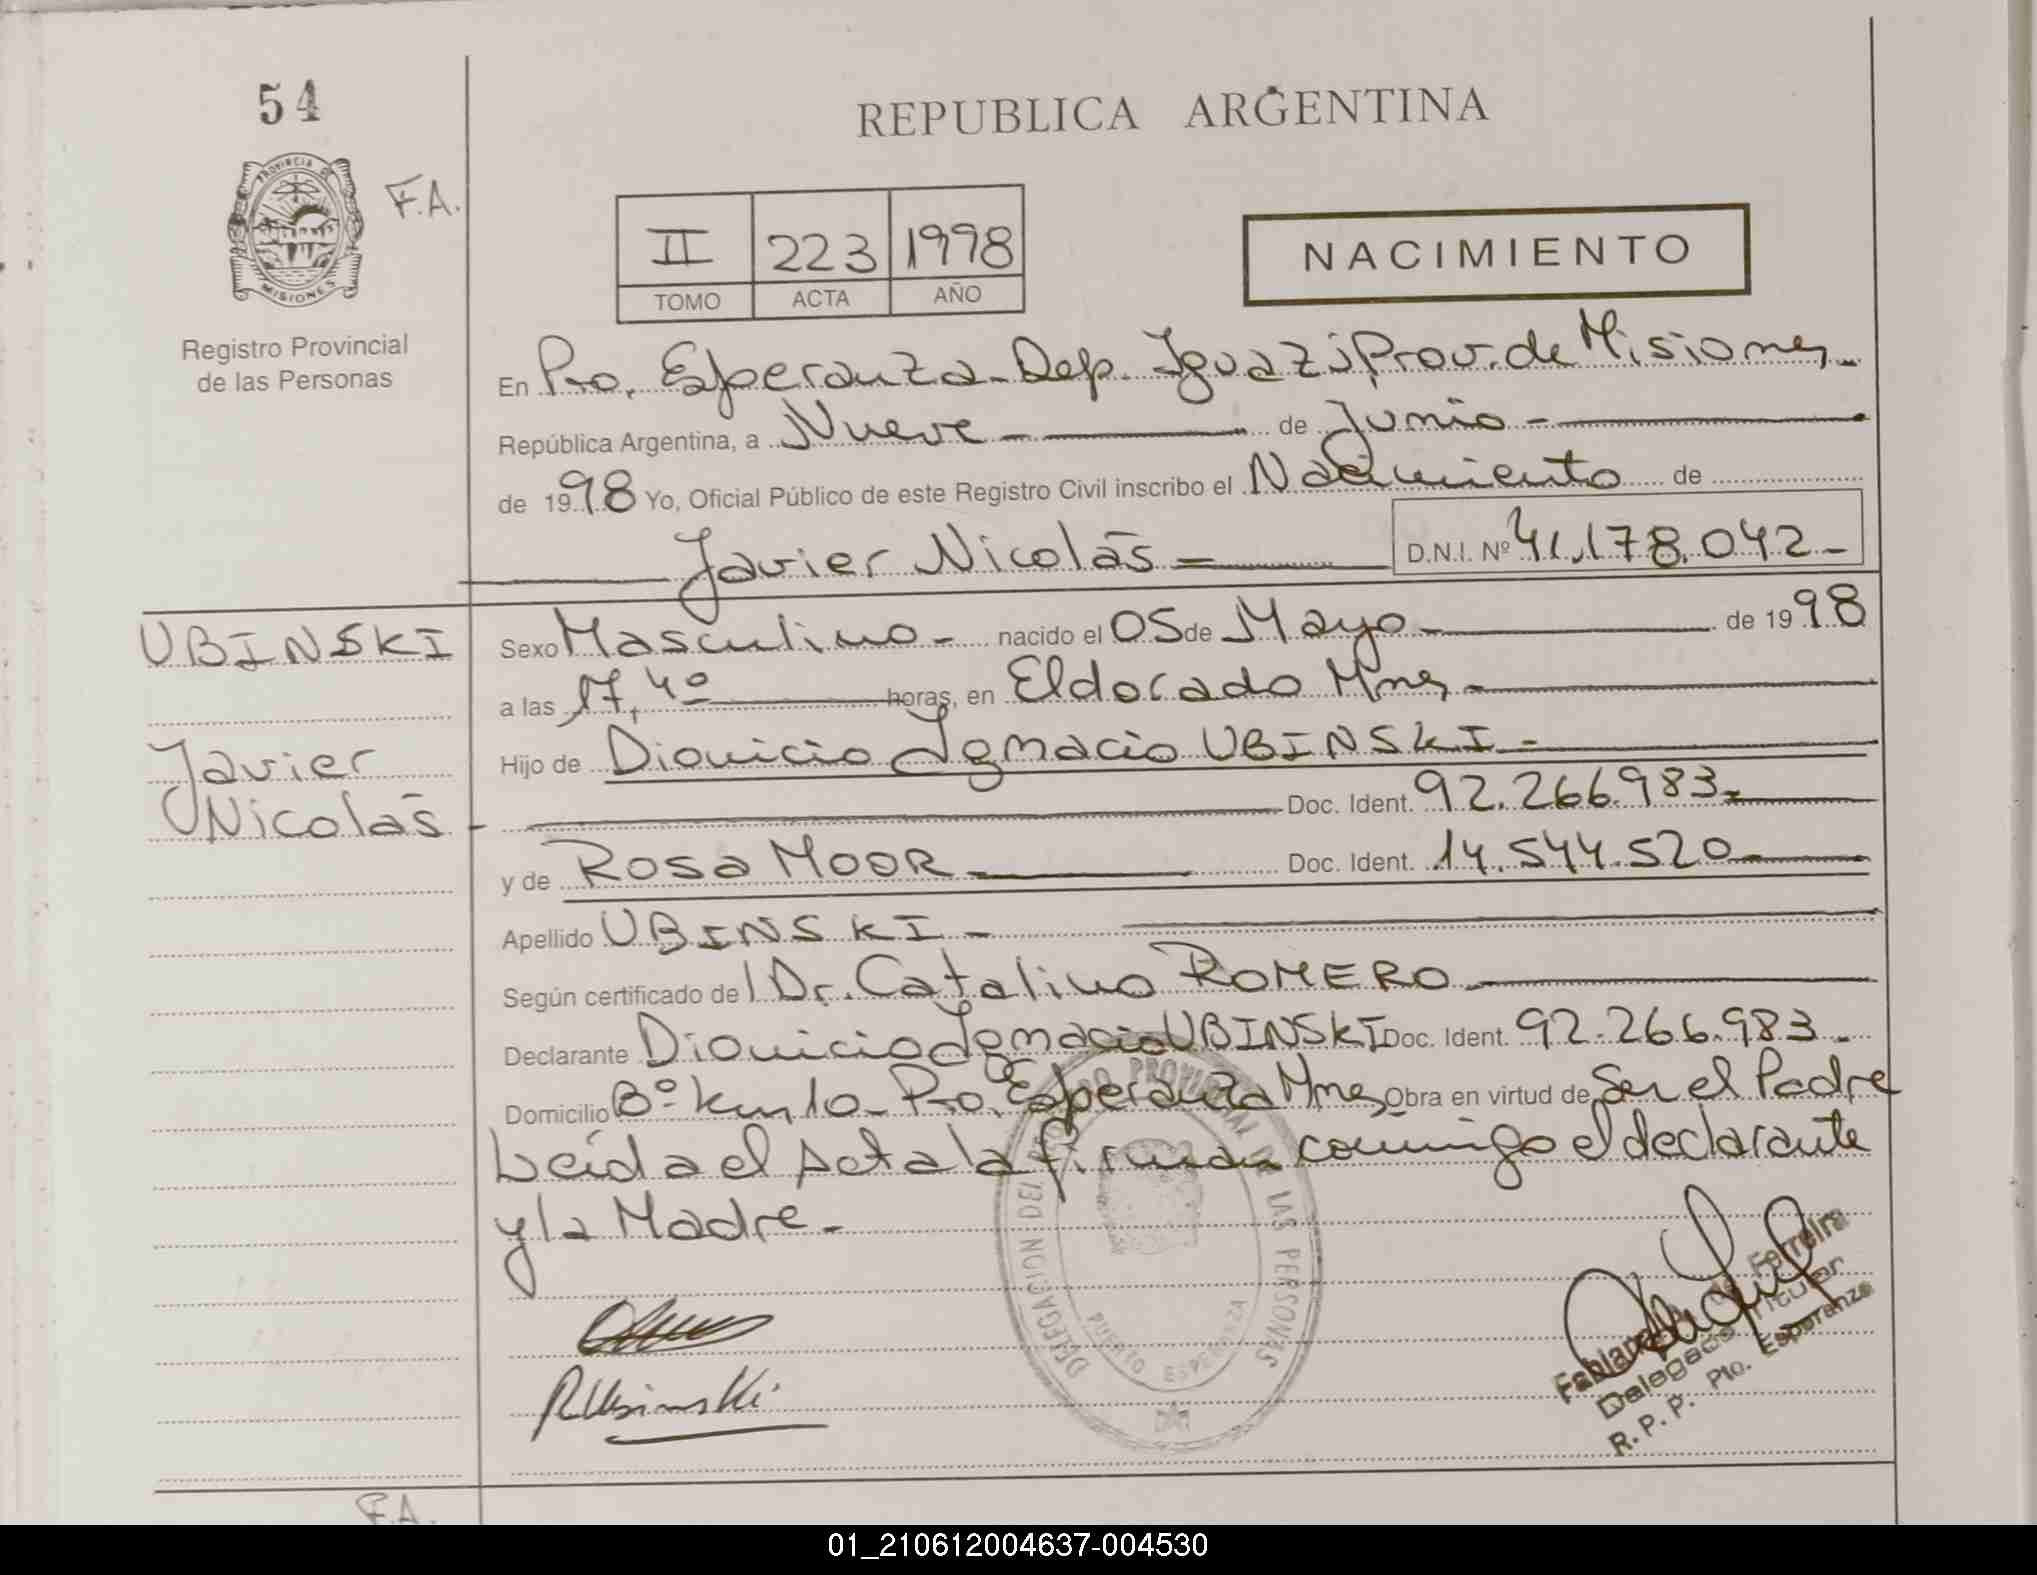 54
PROVINCIA DE
MISIONES
F.A.
Registro Provincial
de las Personas
REPUBLICA ARGENTINA
II 223 1998
TOMO ACTA AÑO
NACIMIENTO
En Pto. Esperanza - Dep. Iguazú Prov. de Misiones -
República Argentina, a Nueve - de Junio -
de 1998 Yo, Oficial Público de este Registro Civil inscribo el Nacimiento de
Javier Nicolás = D.N.I. Nº 41.178.042 -
UBINSKI
Javier
Nicolás -
Sexo Masculino - nacido el 05 de Mayo - de 1998
a las 17,40 horas, en Eldorado Mnes -
Hijo de Dionicio Ignacio UBINSKI -
Doc. Ident. 92.266.983 -
y de ROSA MOOR - Doc. Ident. 14.544.520 -
Apellido UBINSKI -
Según certificado del Dr. Catalino ROMERO -
Declarante Dionicio Ignacio UBINSKI Doc. Ident. 92.266.983 -
Domicilio Bº km 10 - Pto. Esperanza Mnes Obra en virtud de Ser el Padre
Leída el Acta la firman conmigo el declarante
y la Madre -
DELEGACION DEL REGISTRO PROVINCIAL DE LAS PERSONAS
PUERTO ESPERANZA
R Ubinski
Ferreira
Titular
R. P. P. Pto. Esperanza
F.A.
01_210612004637-004530